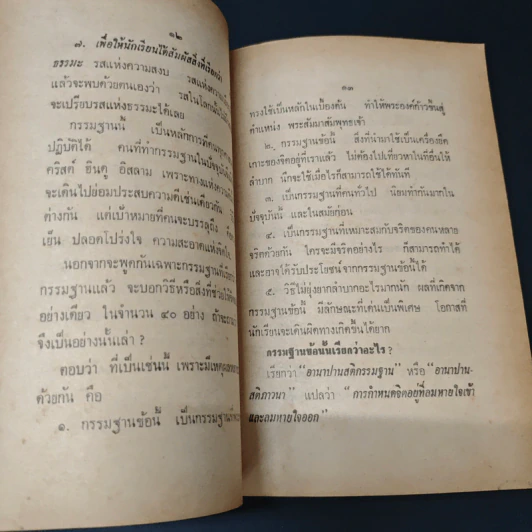 ๑๒
๗. เพื่อให้นักเรียนได้สัมผัสสิ่งที่เรียกว่า
ธรรมะ รสแห่งความสงบ รสแห่งความ
แล้วจะพบด้วยตนเองว่า รสในโลกนั้น
จะเปรียบรสแห่งธรรมะได้เลย
กรรมฐานนี้ เป็นหลักการที่คน
ปฏิบัติได้ คนที่ทำกรรมฐานในปัจจุบัน
คริสต์ ฮินดู อิสลาม เพราะทางแห่งความ
จะเดินไปย่อมประสบความดีเช่นเดียวกัน
ต่างกัน แต่เป้าหมายที่คนจะบรรลุถึง คือ
เย็น ปลอดโปร่งใจ ความสะอาดแห่งจิตใจ
นอกจากจะพูดกันเฉพาะกรรมฐานที่เรียก
กรรมฐานแล้ว จะบอกวิธีหรือสิ่งที่ช่วยให้
อย่างเดียว ในจำนวน ๔๐ อย่าง ถ้าจะถาม
จึงเป็นอย่างนั้นเล่า ?
ตอบว่า ที่เป็นเช่นนี้ เพราะมีเหตุผล
ด้วยกัน คือ
๑. กรรมฐานข้อนี้ เป็นกรรมฐานที่
๑๓
ทรงใช้เป็นหลักในเบื้องต้น ทำให้พระองค์ก้าวขึ้นสู่
ตำแหน่ง พระสัมมาสัมพุทธเจ้า
๒. กรรมฐานข้อนี้ สิ่งที่นำมาใช้เป็นเครื่องยึด
เกาะของจิตอยู่ที่เราแล้ว ไม่ต้องไปเที่ยวหาในที่อื่นให้
ลำบาก นึกจะใช้เมื่อไรก็สามารถใช้ได้ทันที
๓. เป็นกรรมฐานที่คนทั่วไป นิยมทำกันมากใน
ปัจจุบันนี้ และในสมัยก่อน
๔. เป็นกรรมฐานที่เหมาะสมกับจริตของคนหลาย
จริตด้วยกัน ใครจะมีจริตอย่างไร ก็สามารถทำได้
และอาจได้รับประโยชน์จากกรรมฐานข้อนี้ได้
๕. วิธีไม่ยุ่งยากลำบากอะไรมากนัก ผลที่เกิดจาก
กรรมฐานข้อนี้ มีลักษณะที่เด่นเป็นพิเศษ โอกาสที่
นักเรียนจะเดินผิดทางเกิดขึ้นได้ยาก
กรรมฐานข้อนั้นเรียกว่าอะไร ?
เรียกว่า "อานาปานสติกรรมฐาน" หรือ "อานาปาน-
สติภาวนา" แปลว่า "การกำหนดจิตอยู่ที่ลมหายใจเข้า
และลมหายใจออก"